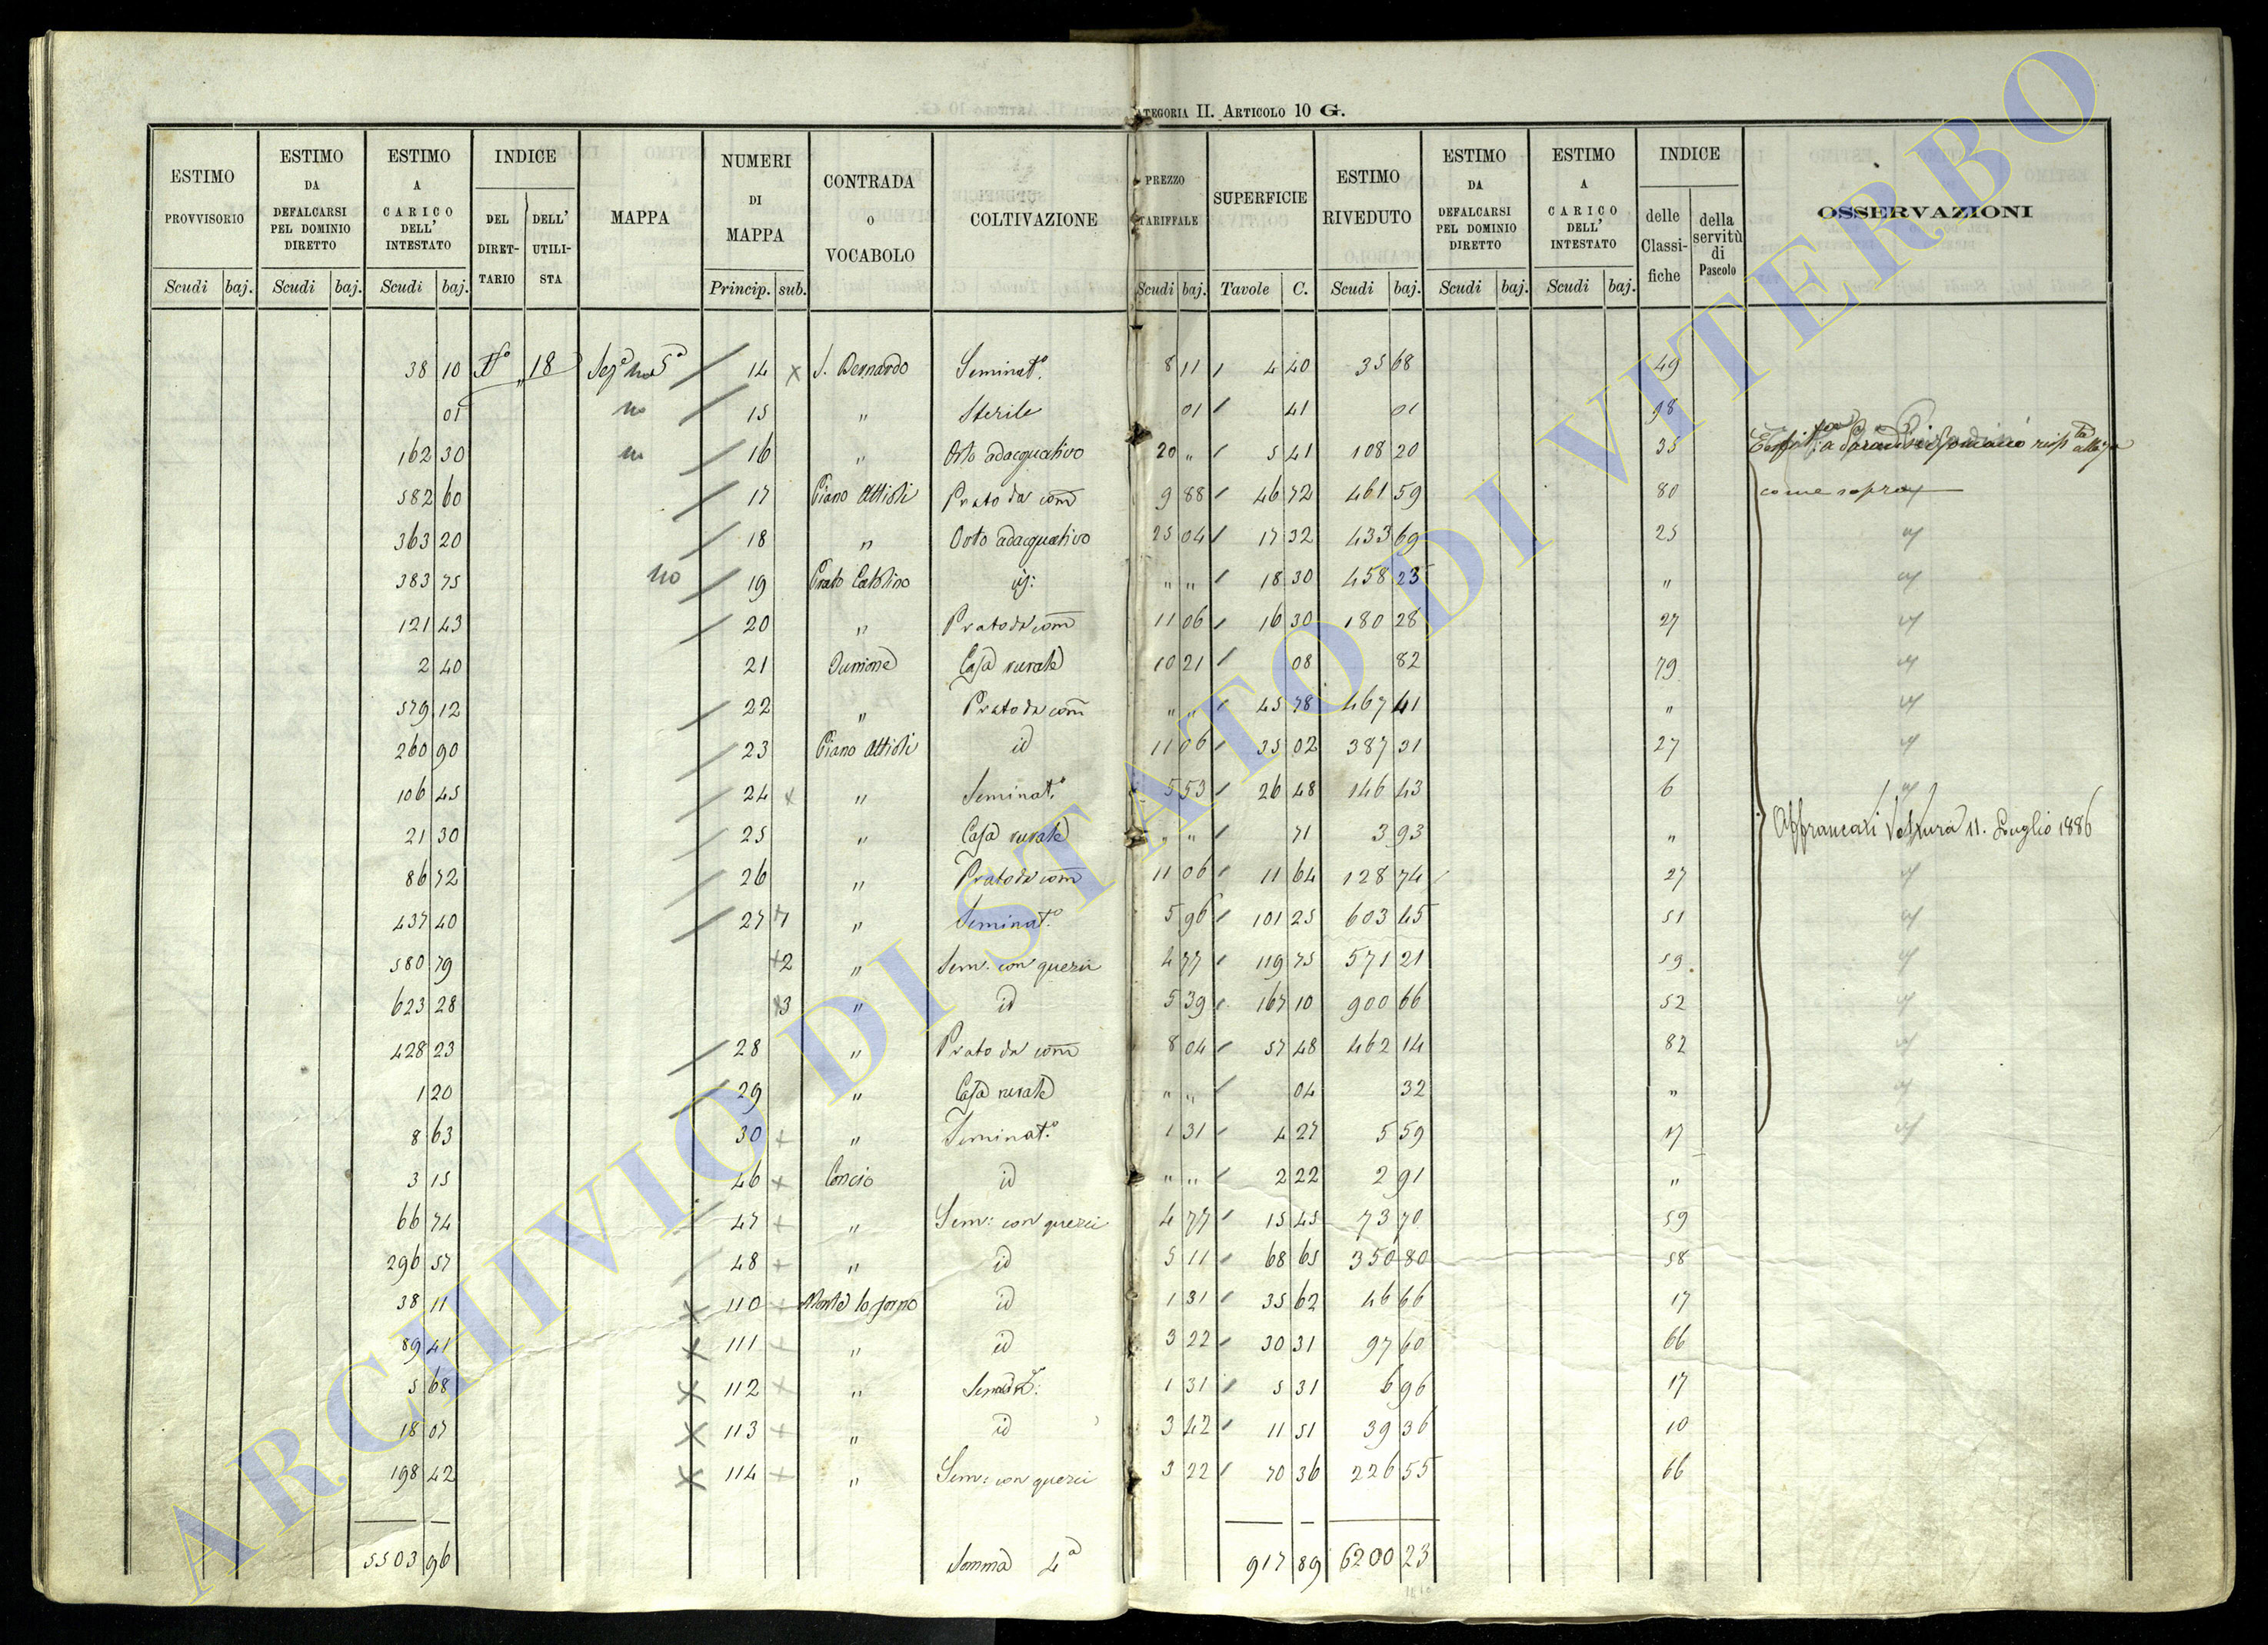 CATEGORIA II. ARTICOLO 10 G.
ESTIMO PROVVISORIO | ESTIMO DA DEFALCARSI PEL DOMINIO DIRETTO | ESTIMO A CARICO DELL' INTESTATO | INDICE | MAPPA | NUMERI DI MAPPA | CONTRADA O VOCABOLO | COLTIVAZIONE | PREZZO TARIFFALE | SUPERFICIE | ESTIMO RIVEDUTO | ESTIMO DA DEFALCARSI PEL DOMINIO DIRETTO | ESTIMO A CARICO DELL' INTESTATO | INDICE | OSSERVAZIONI
DEL DIRETTARIO | DELL' UTILISTA | delle Classifiche | della servitù di Pascolo
Scudi | baj. | Scudi | baj. | Scudi | baj. | Princip. | sub. | Scudi | baj. | Tavole | C. | Scudi | baj. | Scudi | baj. | Scudi | baj.
38 10 | 18 | 14 | S. Bernardo | Seminat.o | 8 11 | 4 40 | 35 68 | 49
01 | no | 15 | " | Sterile | 01 | 41 | 01 | 98
162 30 | 16 | " | Orto adacquativo | 20 " | 5 41 | 108 20 | 35
582 60 | 17 | Piano Attioli | Prato da com | 9 88 | 46 72 | 461 59 | 80 | come sopra
363 20 | 18 | " | Orto adacquativo | 25 04 | 17 32 | 433 69 | 25
383 75 | no | 19 | Prato | id: | " " | 18 30 | 458 23 | "
121 43 | 20 | " | Prato da com | 11 06 | 16 30 | 180 28 | 27
2 40 | 21 | Casa rurale | 10 21 | 08 | 82 | 79
579 12 | 22 | " | Prato da com | " " | 45 78 | 467 41 | "
260 90 | 23 | Piano Attioli | id | 11 06 | 35 02 | 387 31 | 27
106 45 | 24 | " | Seminat.o | 5 53 | 26 48 | 146 43 | 6
21 30 | 25 | " | Casa rurale | " " | 71 | 3 93 | " | Affrancazi Voltura 11. Luglio 1886
86 72 | 26 | " | Prato da com | 11 06 | 11 64 | 128 74 | 27
437 40 | 27 1 | " | Seminat.o | 5 96 | 101 25 | 603 45 | 51
580 79 | 2 | " | Sem: con querci | 4 77 | 119 75 | 571 21 | 59
623 28 | 3 | " | id | 5 39 | 167 10 | 900 66 | 52
428 23 | 28 | " | Prato da com | 8 04 | 57 48 | 462 14 | 82
1 20 | 29 | " | Casa rurale | " " | 04 | 32 | "
8 63 | 30 | " | Seminat.o | 1 31 | 4 27 | 5 59 | 17
3 15 | 46 | Concio | id | " " | 2 22 | 2 91 | "
66 74 | 47 | " | Sem: con querci | 4 77 | 15 45 | 73 70 | 59
296 57 | 48 | " | id | 5 11 | 68 65 | 350 80 | 58
38 11 | 110 | Monte lo forno | id | 1 31 | 35 62 | 46 66 | 17
89 41 | 111 | " | id | 3 22 | 30 31 | 97 60 | 66
5 68 | 112 | " | Seminat: | 1 31 | 5 31 | 6 96 | 17
18 07 | 113 | " | id | 3 42 | 11 51 | 39 36 | 10
198 42 | 114 | " | Sem: con querci | 3 22 | 70 36 | 226 55 | 66
5503 96 | Somma 4a | 917 89 | 6200 23
ARCHIVIO DI STATO DI VITERBO